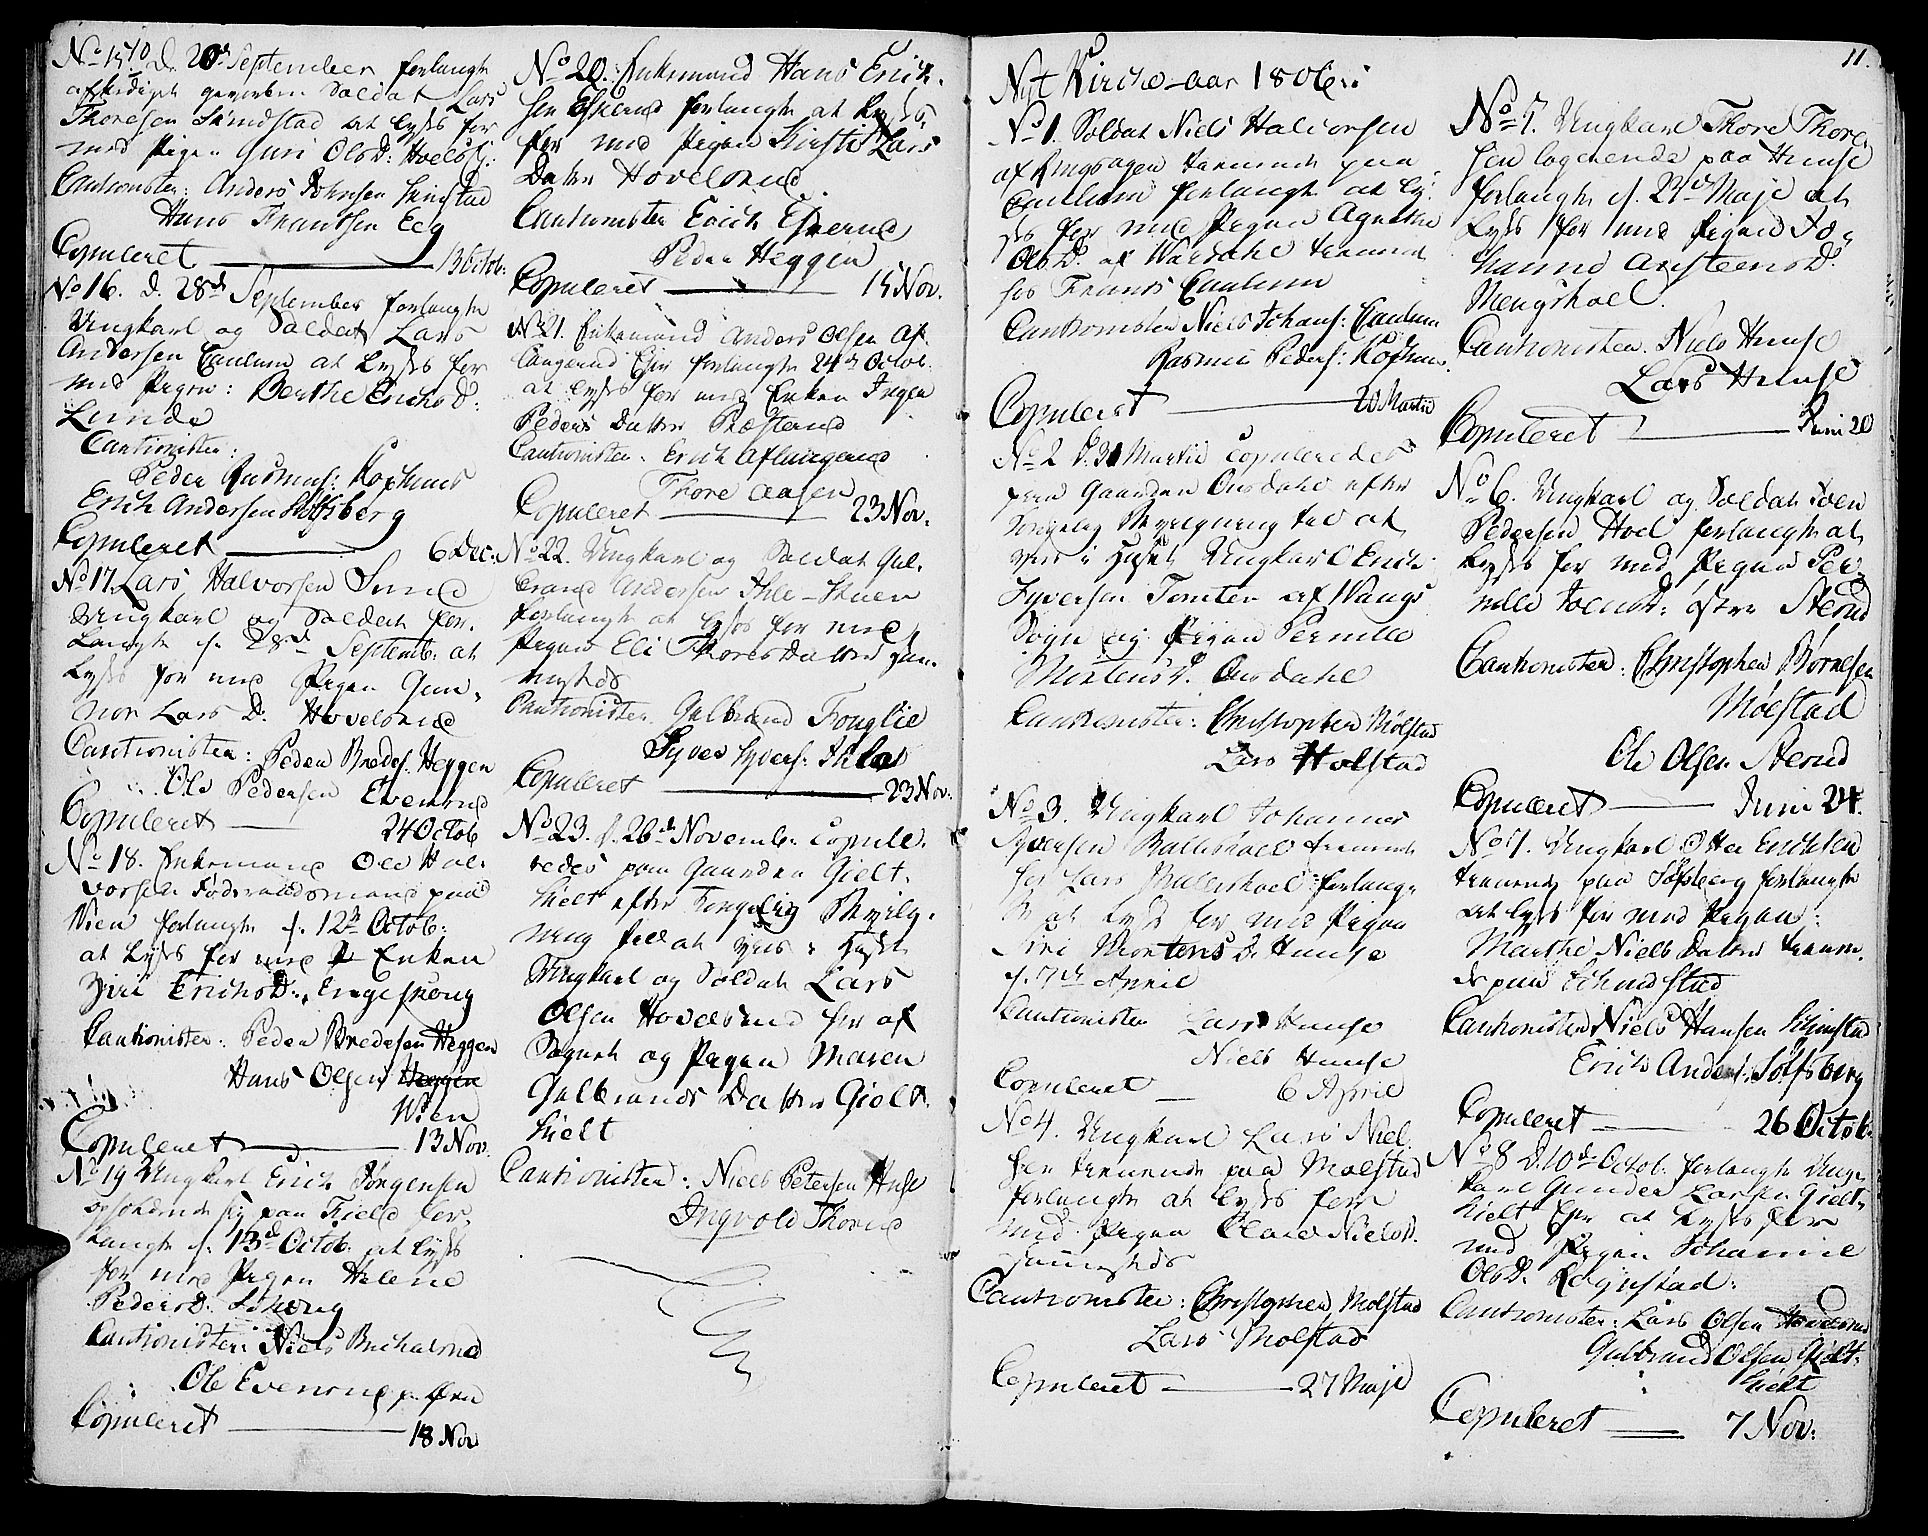 No 15 10 D. 20de September forlangte
afskediget geworben Soldat Lars
Thoresen Skindstad at lyses for
med Pigen Guri OlsD: Hoels
Cautionister: Anders Johnsen Skinstad
Hans Frantsen Eeg
Copuleret 13 Octob:
No 16. d. 28de September forlangte
Ungkarl og Soldat Lars
Andersen Caulum at lyses for
med Pigen: Berthe ErichsD:
Lunde
Cautionister:
Peder Rasmus: Kophuus
Erich Andersen Solfsberg
Copuleret 6 Dec:
No 17. Lars Halvorsen Smed
Ungkarl og Soldat for-
langte d. 28de Septemb: at
lyses for med Pigen Gun-
nor Lars D. Hovelsrud
Cautionister: Peder Bredes: Heggen
Ole Pedersen Evensrud
Copuleret 24 Octob
No 18. Enkemand Ole Hal-
vorsen Föderaadsmand paa
Wien forlangte d. 12te Octob:
at lyses for med Enken
Siri ErichsD: Engesroug
Cautionister: Peder Bredesen Heggen
Hans Olsen Heggen
Wien
Copuleret 13 Nov.
No 19 Ungkarl Erich Jörgensen
opholdende sig paa Field for-
langte d. 13de Octob. at lyses
for med Pigen Helene
PedersD.
Cautionister: Niels
Ole Evensrud
Copuleret 18 Nov
No 20. Enkemand Hans Erich-
sen Eskerud forlangte at lyses
for med Pigen Kirsti Lars
Datter Hovelsrud.
Cautionister Erich Eskerud
Peder Heggen
Copuleret 15 Nov.
No 21. Enkemand Anders Olsen Af-
langerud Eier forlangte 24de Octob.
at lyses for med Enken Inger
Peders Datter Præsterud
Cautionister. Erich Aflangerud
Thore Aasen
Copuleret 23 Nov.
No 22. Ungkarl og Soldat Gul-
brand Andersen Ihle-Stuen
forlangte at lyses for med
Pigen Eli Thoresdatter sam-
mesteds
Cautionister. Gulbrand Fouglie
Syver Syvers: Ihle
Copuleret 23 Nov:
No 23. d. 26de Novemb: copule-
redes paa Gaarden Gielt-
hielt efter Kongelig Bevilg-
ning til at vies i Huset
Ungkarl og Soldat Lars
Olsen Hovelsrud her af
Sognet og Pigen Maren
Gulbrands Datter Gielt-
hielt
Cautionister: Niels Petersen Huse
Ingvold Thorud
11.
Nyt Kirche-aar 1806:
No 1. Soldat Niels Halvorsen
af Ringsager tienende paa
Caulum forlangte at ly-
ses for med Pigen Agnethe
OlsD. af Wardahl tienende
hos Frands Caulum
Cautionister Niels Johans: Caulum
Rasmus Peders: Kophuus.
Copuleret Martii
No 2 D. 31 Martii copuleredes
paa Gaarden Onsdahl efter
Kongelig Bevilgning til at
vies i Huset Ungkarl Erich
Syversen Tomten af Wangs
Sogn og Pigen Pernille
MortensD. Onsdahl
Cautionister: Christopher Mölstad
Lars Holstad
No 3. Ungkarl Johannes
Syversen Balleshoel tienende
hos Lars Balleshoel forlang-
te at lyses for med Pigen
Siri Mortens D. Hunse
d. 7de April
Cautionister Lars Hunse
Niels Hunse
Copuleret 6 April
No 4. Ungkarl Lars Niel-
sen tienende paa Mölstad
forlangte at lyses for
med Pigen NielsD.
sammesteds
Cautionister: Christopher Mölstad
Lars Molstad
Copuleret 27 Maji
No 5. Ungkarl Thore Thore-
sen logerende paa Hunse
forlangte d. 23de Maji at
lyses for med Pigen Jo-
hanne AusteensD.
Mengshoel.
Cautionister. Niels Hunse
Lars Hunse
Copuleret Juni 20
No 6. Ungkarl og Soldat Joen
Pedersen Hoel forlangte at
lyses for med Pigen Per-
nille JoensD: östre Sterud
Cautionister: Christopher Börresen
Mölstad
Ole Olsen Sterud
Copuleret Juni 24.
No 7. Ungkarl Otter Erichsen
tienende paa Solfsberg forlangte
at lyses for med Pigen:
Marthe Niels Datter tienen-
de paa Schindstad
Cautionister Niels Hansen Schinstad
Erich Anders: Solfsberg
Copuleret 26 Octob.
No 8 D. 10de Octob. forlangte Ung-
karl Gunder Larsen Gielt-
hielt Eier at lyses for
med Pigen Johanne
OlsD. Rognstad:
Cautionister: Lars Olsen Hovelsrud
Gulbrand Olsen Gielt-
hielt
Copuleret 7 Nov: